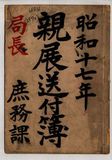 昭和十七年
親展送付簿
局長
庶務課